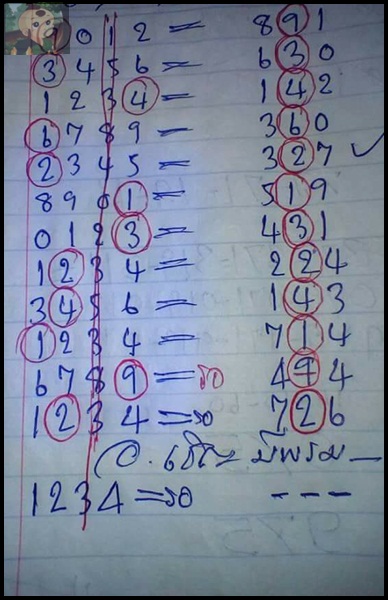 9 0 1 2 = 8 9 1
3 4 5 6 = 6 3 0
1 2 3 4 = 1 4 2
6 7 8 9 = 3 6 0
2 3 4 5 = 3 2 7 ✓
8 9 0 1 = 5 1 9
0 1 2 3 = 4 3 1
1 2 3 4 = 2 2 4
3 4 5 6 = 1 4 3
1 2 3 4 = 7 1 4
6 7 8 9 = รอ 4 9 4
1 2 3 4 = รอ 7 2 6
มีพรม
1 2 3 4 = รอ - - -